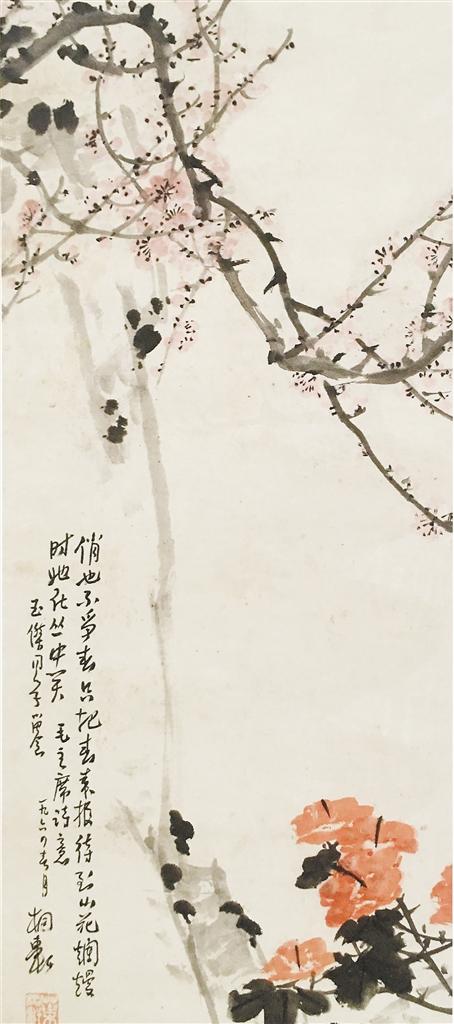 俏也不争春只把春来报待到山花烂熳
时她在丛中笑 毛主席诗意
玉杰同志留念
一九六 春月